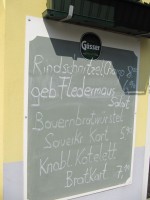 Gösser
Rindschnitzel
geb Fledermaus
Salat
Bauernbratwürstel
Sauerkr Kart 5,90
Knobl. Kotelett
BratKart 7,90